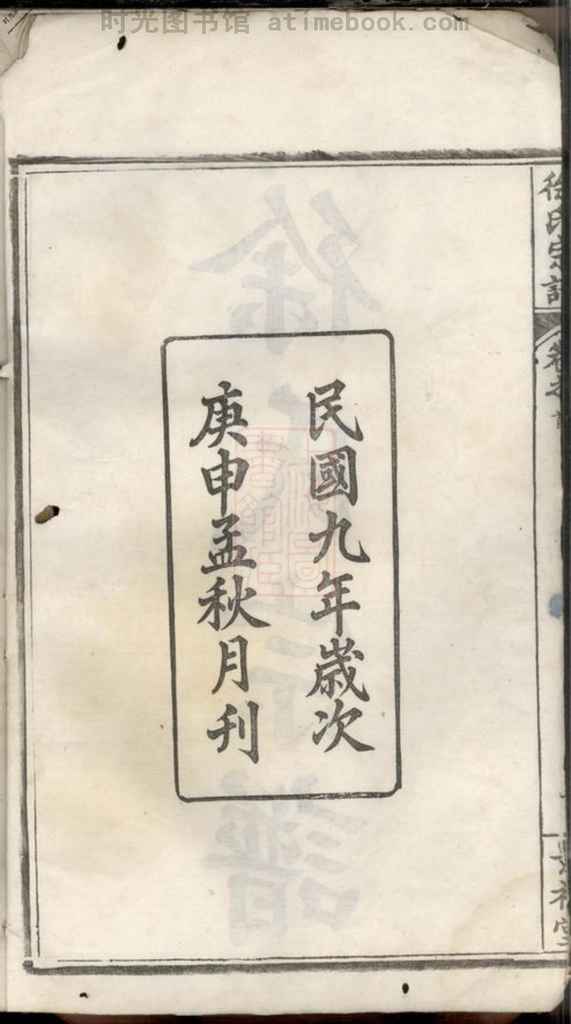 时光图书馆 atimebook.com
民國九年歲次
庚申孟秋月刊
徐氏宗譜
卷之首